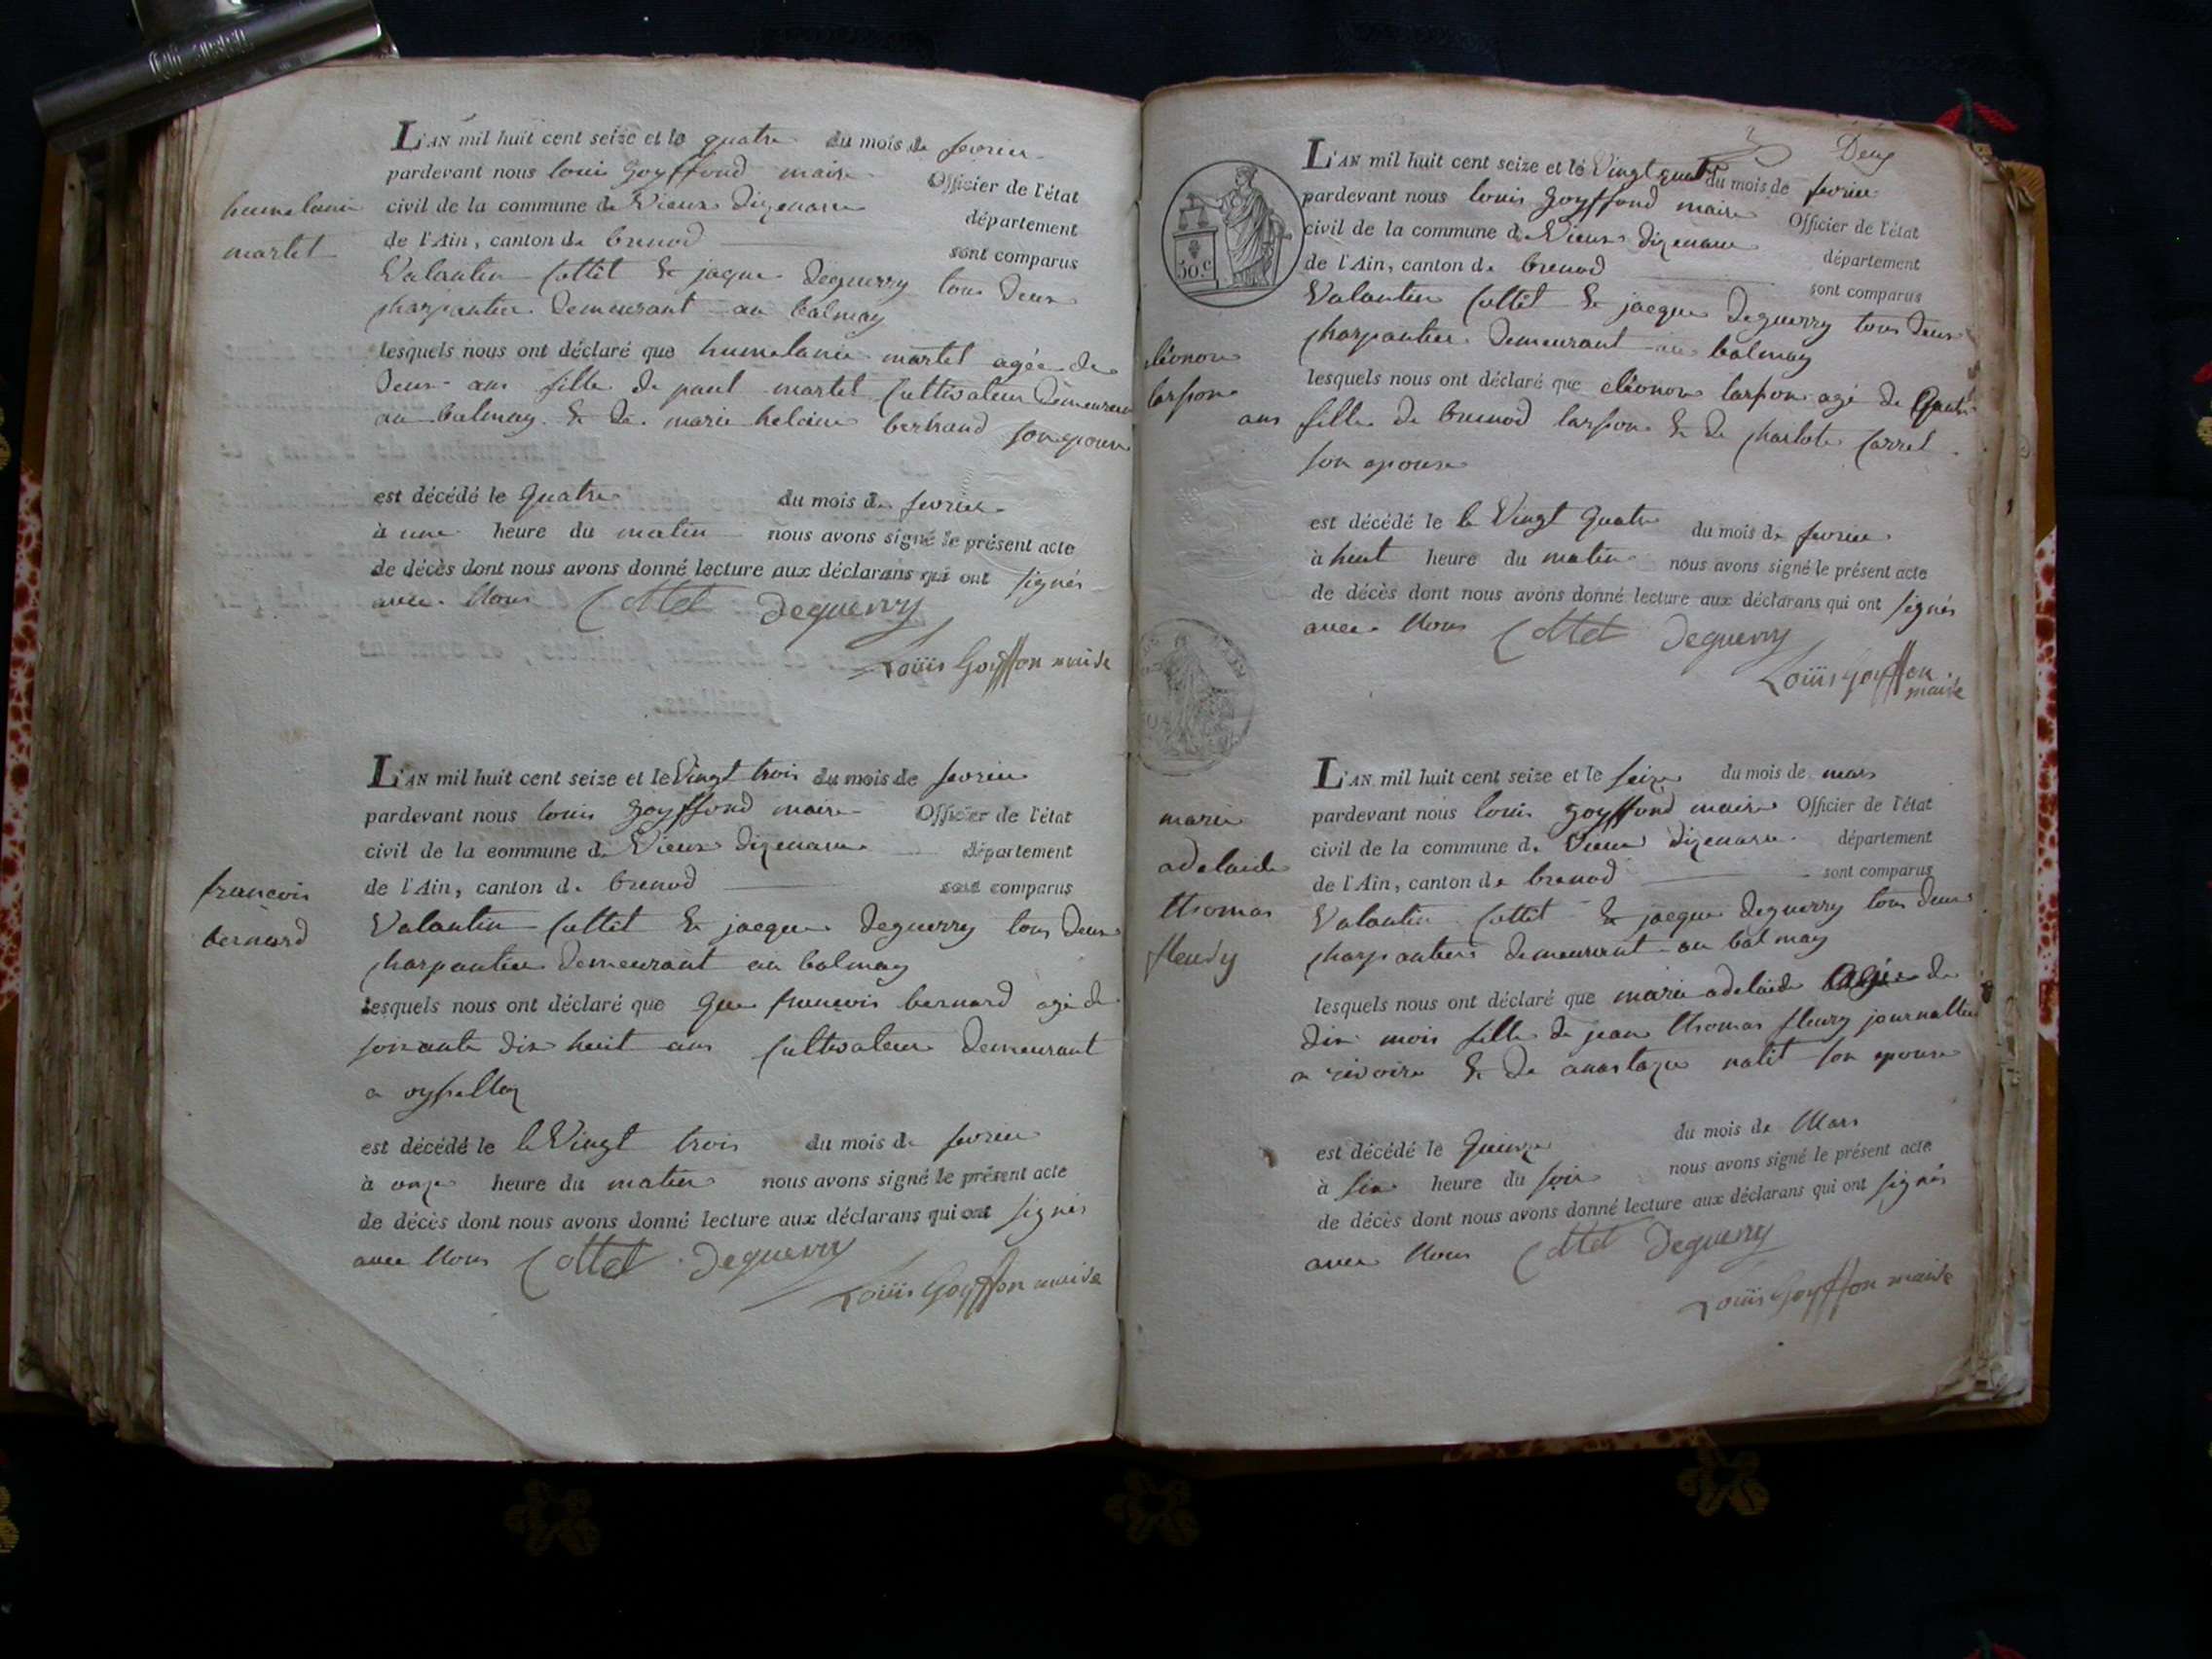 humelanie
martel
L'AN mil huit cent seize et le quatre du mois de fevrier
pardevant nous louis goyffond maire Officier de l'état
civil de la commune de Vieux dizenave département
de l'Ain, canton de brenod sont comparus
Valantin Cottet & jaque deguerry tous deux
charpantier demeurant au balmay
lesquels nous ont déclaré que humelanie martel agée de
deux ans fille de paul martel cultivateur demeurant
au balmay & de marie helaine bertrand son epouse
est décédé le quatre du mois de fevrier
à une heure du matin nous avons signé le présent acte
de décès dont nous avons donné lecture aux déclarans qui ont signés
avec Nous Cottet deguerry
Louis Goyffon maire
francois
bernard
L'AN mil huit cent seize et le Vingt trois du mois de fevrier
pardevant nous louis goyffond maire Officier de l'état
civil de la commune de Vieux dizenave département
de l'Ain, canton de brenod sont comparus
Valantin Cottet & jacque deguerry tous deux
charpantier demeurant au balmay
lesquels nous ont déclaré que que françois bernard agé de
soixante dix huit ans cultivateur demeurant
a oyssellaz
est décédé le le Vingt trois du mois de fevrier
à onze heure du matin nous avons signé le présent acte
de décès dont nous avons donné lecture aux déclarans qui ont signés
avec Nous Cottet deguerry
Louis Goyffon maire
Deux
50.c
eléonore
larson
L'AN mil huit cent seize et le Vingt quatre du mois de fevrier
pardevant nous louis goyffond maire Officier de l'état
civil de la commune de Vieux dizenave département
de l'Ain, canton de brenod sont comparus
Valantin Cottet & jacque deguerry tous deux
charpantier demeurant au balmay
lesquels nous ont déclaré que eléonore larson agé de quatre
ans fille de brunod larson & de charlote carrel
son epouse
est décédé le le Vingt quatre du mois de fevrier
à huit heure du matin nous avons signé le présent acte
de décès dont nous avons donné lecture aux déclarans qui ont signés
avec Nous Cottet deguerry
Louis Goyffon
maire
marie
adelaide
thomas
fleury
L'AN mil huit cent seize et le seize du mois de mars
pardevant nous louis goyffond maire Officier de l'état
civil de la commune de Vieux dizenave département
de l'Ain, canton de brenod sont comparus
Valantin Cottet & jacque deguerry tous deux
charpantier demeurant au balmay
lesquels nous ont déclaré que marie adelaide agée de
dix mois fille de jean thomas fleury journallier
a & de anastazie natit son epouse
est décédé le quinze du mois de Mars
à six heure du soir nous avons signé le présent acte
de décès dont nous avons donné lecture aux déclarans qui ont signés
avec Nous Cottet deguerry
Louis Goyffon maire